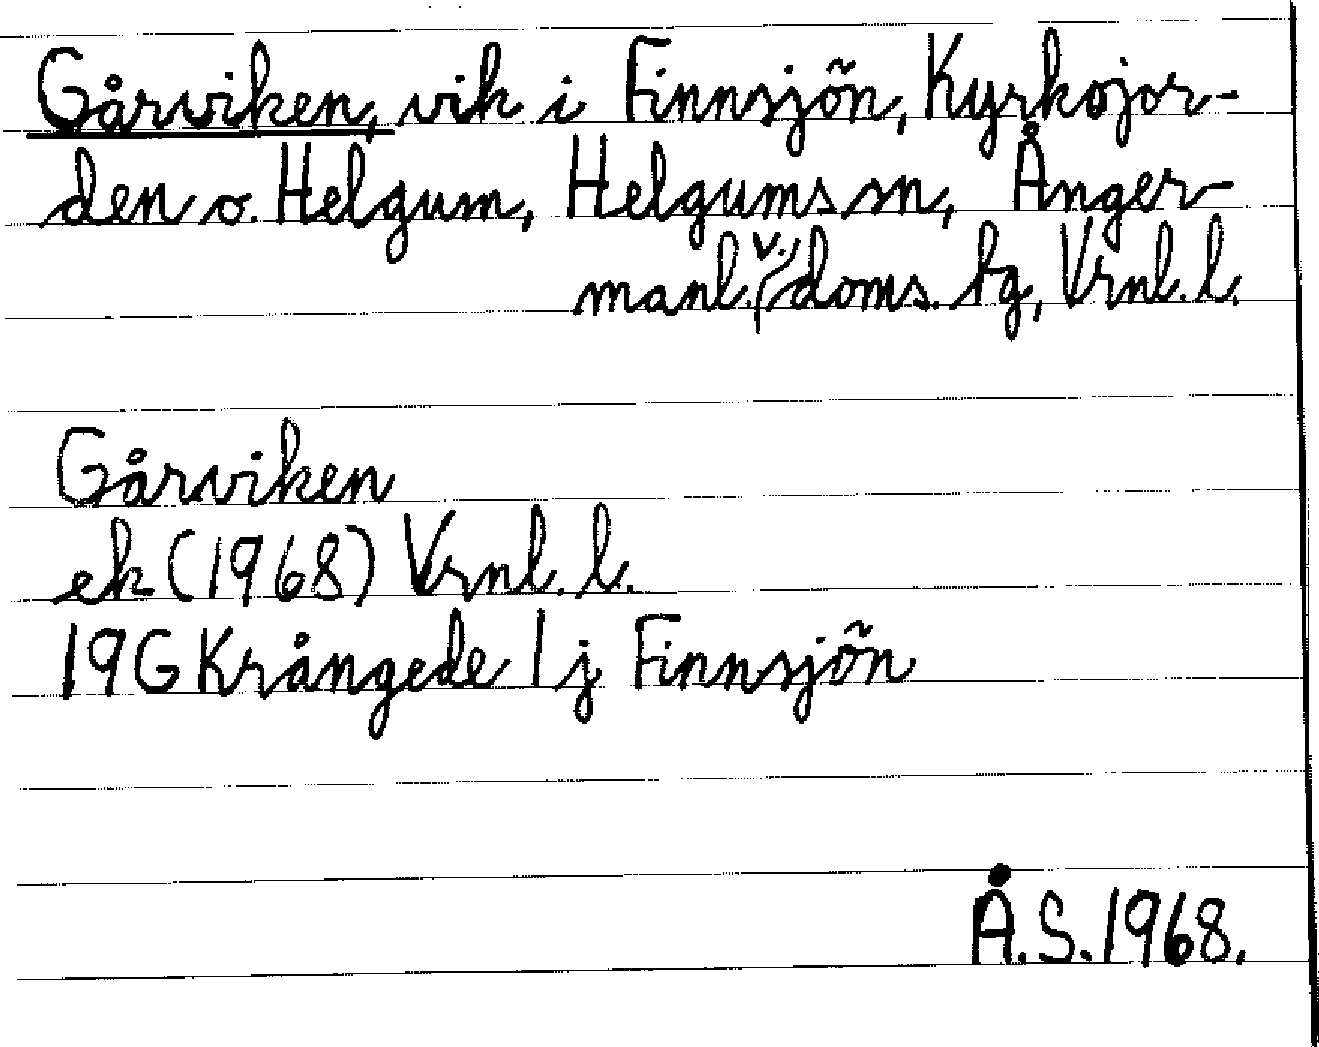 Gårviken, vik i Finnsjön, Kyrkojor-
den o. Helgum, Helgums sn, Ånger-
manl. v. doms. tg, Vrnl. l.
Gårviken
ek (1968) Vrnl. l.
19G Krångede 1 j Finnsjön
Å.S. 1968.